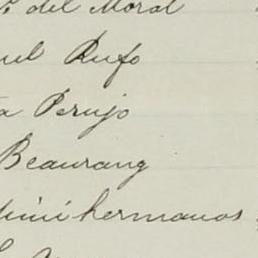 del Moral
Rufo
Perujo
Beaurang
hermanos